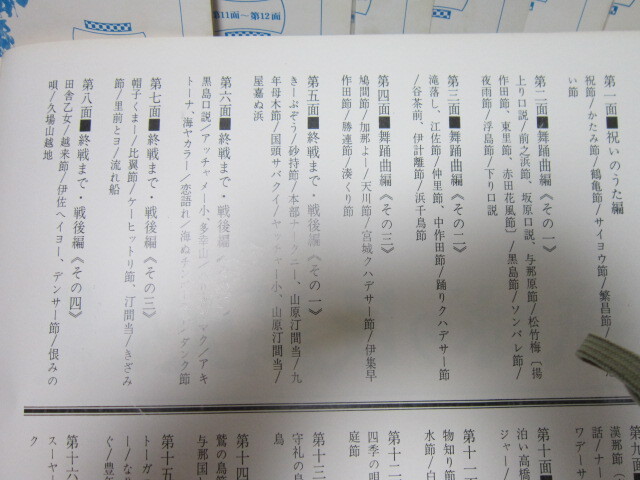 第11面～第12面
第一面■祝いのうた編
祝節/かたみ節/鶴亀節/サイヨウ節/繁昌節/
い節
第二面■舞踊曲編《その一》
上り口説/前之浜節、坂原口説、与那原節/松竹梅〔揚
作田節、東里節、赤田花風節〕/黒島節/ソンバレ節/
夜雨節/浮島節/下り口説
第三面■舞踊曲編《その二》
滝落し、江佐節/仲里節、中作田節/踊りクハデサー節
/谷茶前、伊計離節/浜千鳥節
第四面■舞踊曲編《その三》
鳩間節/加那よー/天川節/宮城クハデサー節/伊集早
作田節/勝連節/湊くり節
第五面■終戦まで・戦後編《その一》
きーぶぞう/砂持節/本部ナークニー、山原汀間当/九
年母木節/国頭サバクイ/ヤッチャー小、山原汀間当/
屋嘉ぬ浜
第六面■終戦まで・戦後編
黒島口説/アッチャメー小、多幸山/マク/アキ
トーナ、海ヤカラー/恋語れ/海ぬ デンク節
第七面■終戦まで・戦後編《その三》
帽子くまー/比翼節/ケーヒットリ節、汀間当/きざみ
節/里前とヨ/流れ船
第八面■終戦まで・戦後編《その四》
田舎乙女/越来節/伊佐ヘイヨー、デンサー節/恨みの
唄/久場山越地
第九面
漢那節
話/ナー
ワデー
第十面■
泊い高橋
ジャー/
第十一
物知り節
水節/白
第十二
四季の唄
庭節
第十三
守礼の島
島
第十四
鷲の鳥節
与那国
第十五
トーガ
ー/な
ぐ/豊年
第十六
スーヤ
ク